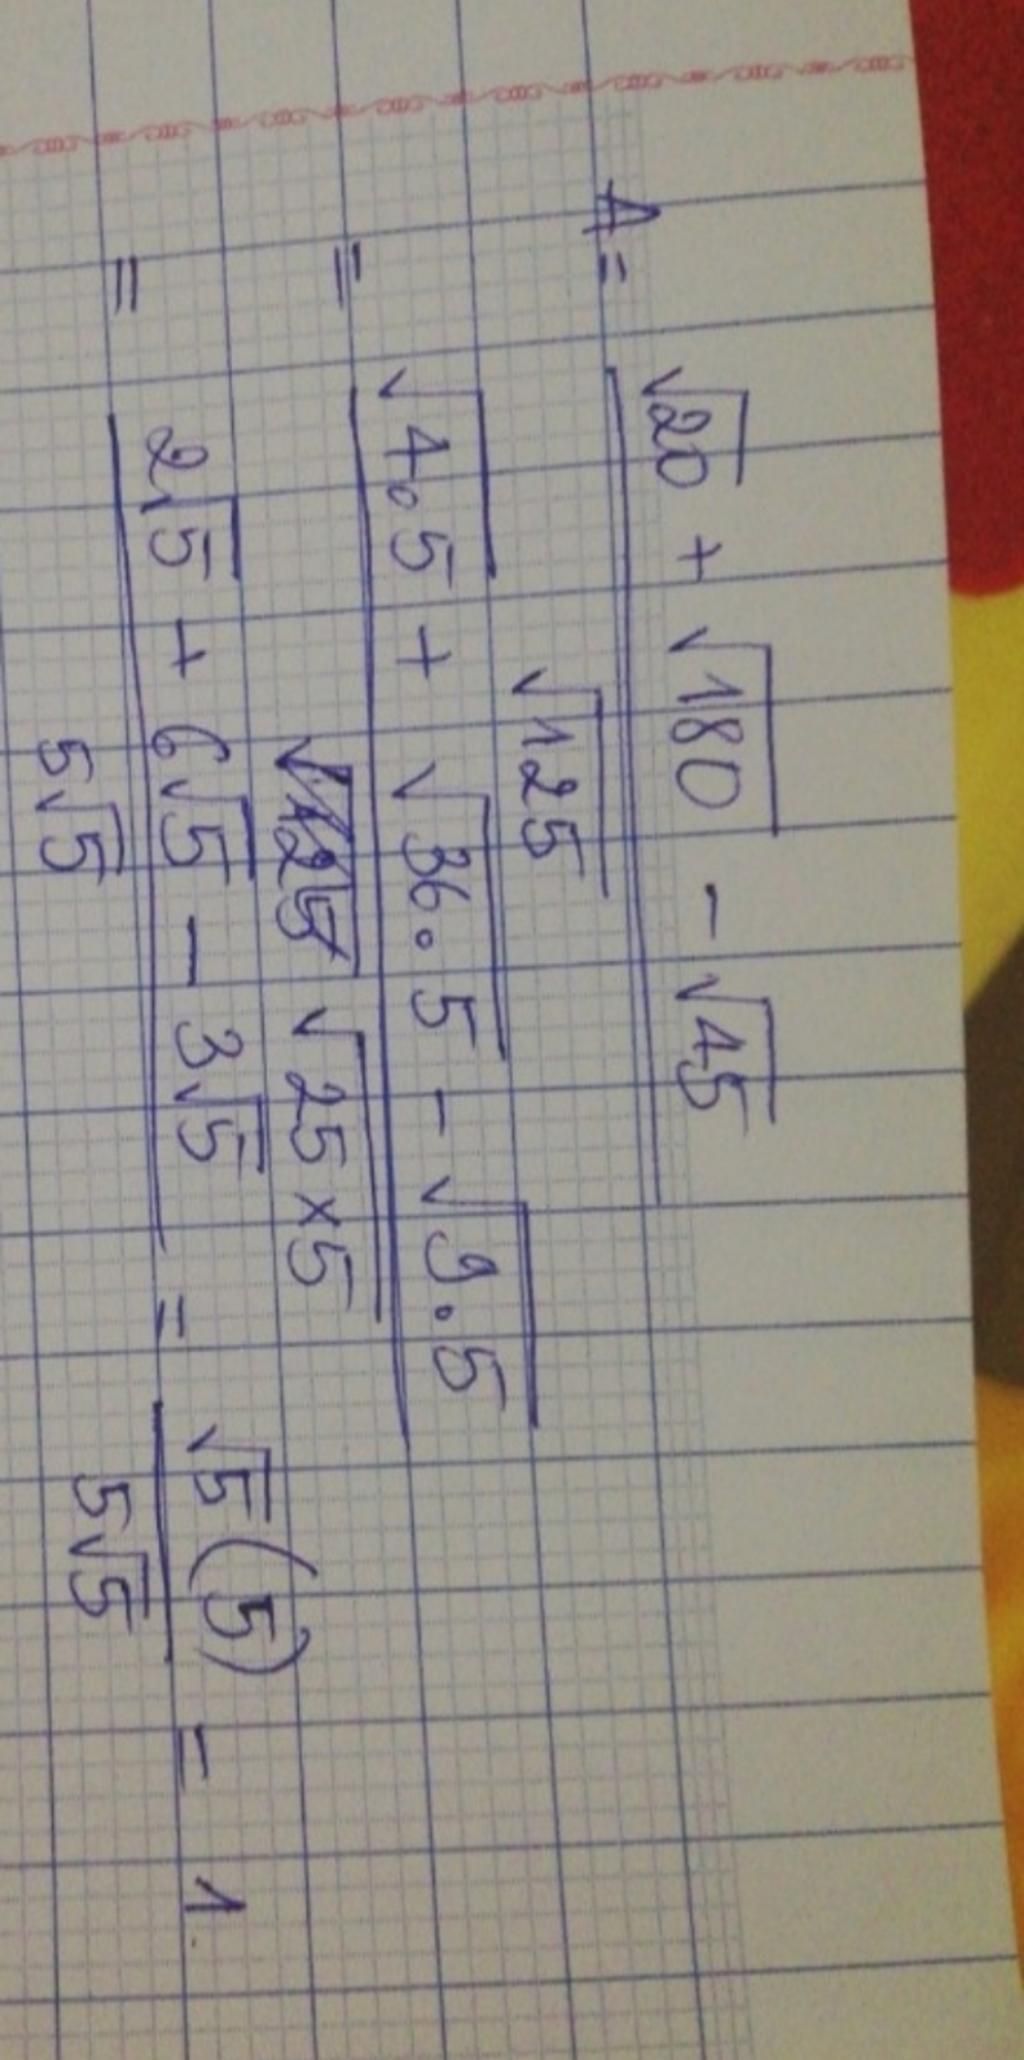 A = √20 + √180 - √45
√125
= √4.5 + √36.5 - √9.5
√25×5
= 2√5 + 6√5 - 3√5 = √5(5) = 1
5√5 5√5